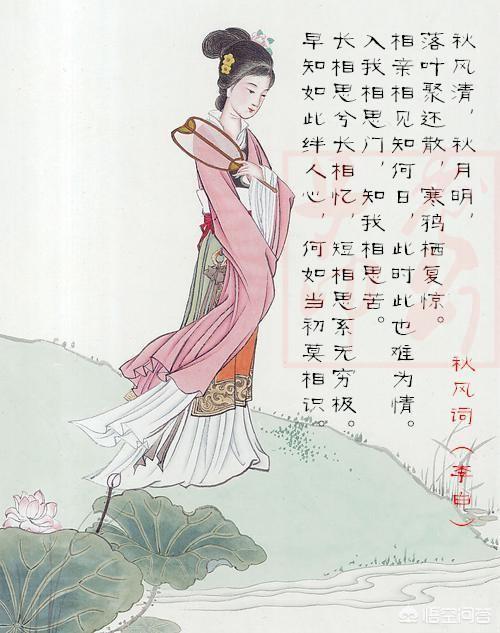 秋风清，秋月明，
落叶聚还散，寒鸦栖复惊。
相亲相见知何日，此时此也难为情。
入我相思门，知我相思苦。
长相思兮长相忆，短相思系无穷极。
早知如此绊人心，何如当初莫相识。
秋风词（李申）
悟空问答